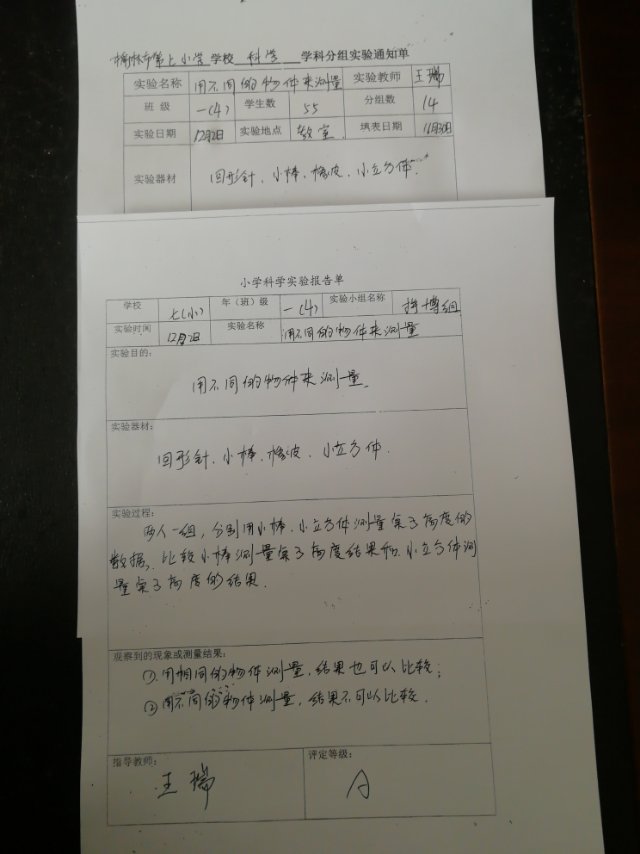 榆林市第七小学学校 科学 学科分组实验通知单
实验名称 用不同的物体来测量 实验教师 王瑞
班 级 一(4) 学生数 55 分组数 14
实验日期 12月2日 实验地点 教室 填表日期 11月30日
实验器材 回形针、小棒、橡皮、小立方体
小学科学实验报告单
学校 七(小) 年（班）级 一(4) 实验小组名称 拼博组
实验时间 12月2日 实验名称 用不同的物体来测量
实验目的:
用不同的物体来测量。
实验器材:
回形针、小棒、橡皮、小立方体.
实验过程:
两人一组，分别用小棒、小立方体测量桌子高度的
数据，比较小棒测量桌子高度结果和小立方体测
量桌子高度的结果.
观察到的现象或测量结果:
①.用相同的物体测量，结果也可以比较；
②用不同的物体测量，结果不可以比较.
指导教师: 评定等级:
王瑞 A